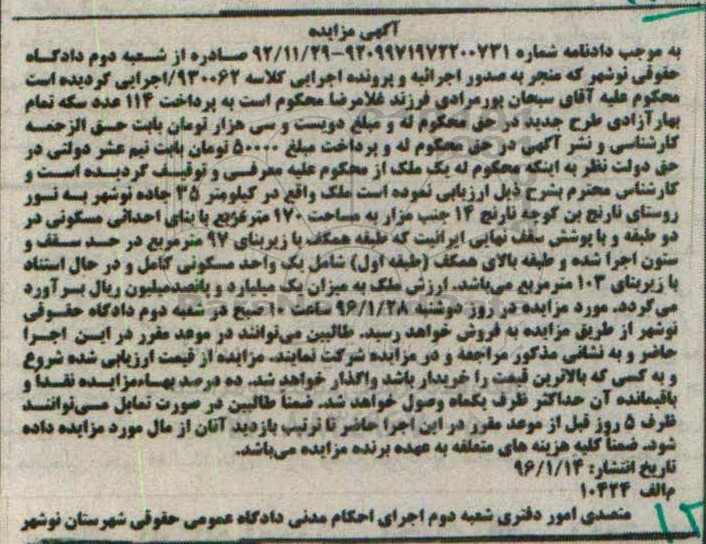 آگهی مزایده
به موجب دادنامه شماره ۹۲۰۹۹۷۱۹۷۲۲۰۰۷۳۱-۹۲/۱۱/۲۹ صادره از شعبه دوم دادگاه
حقوقی نوشهر که منجر به صدور اجرائیه و پرونده اجرایی کلاسه ۹۳۰۰۶۲/اجرایی گردیده است
محکوم علیه آقای سبحان پورمرادی فرزند غلامرضا محکوم است به پرداخت ۱۱۴ عدد سکه تمام
بهارآزادی طرح جدید در حق محکوم له و مبلغ دویست و سی هزار تومان بابت حق الزحمه
کارشناسی و نشر آگهی در حق محکوم له و پرداخت مبلغ ۵۰۰۰۰ تومان بابت نیم عشر دولتی در
حق دولت نظر به اینکه محکوم له یک ملک از محکوم علیه معرفی و توقیف گردیده است و
کارشناس محترم بشرح ذیل ارزیابی نموده است ملک واقع در کیلومتر ۳۵ جاده نوشهر به نور
روستای نارنج بن کوچه نارنج ۱۴ جنب مزار به مساحت ۱۷۰ مترمربع با بنای احداثی مسکونی در
دو طبقه و با پوشش سقف نهایی ایرانیت که طبقه همکف با زیربنای ۹۷ مترمربع در حد سقف و
ستون اجرا شده و طبقه بالای همکف (طبقه اول) شامل یک واحد مسکونی کامل و در حال استناد
با زیربنای ۱۰۳ مترمربع می‌باشد. ارزش ملک به میزان یک میلیارد و پانصدمیلیون ریال برآورد
می‌گردد. مورد مزایده در روز دوشنبه ۹۶/۱/۲۸ ساعت ۱۰ صبح در شعبه دوم دادگاه حقوقی
نوشهر از طریق مزایده به فروش خواهد رسید. طالبین می‌توانند در موعد مقرر در این اجرا
حاضر و به نشانی مذکور مراجعه و در مزایده شرکت نمایند. مزایده از قیمت ارزیابی شده شروع
و به کسی که بالاترین قیمت را خریدار باشد واگذار خواهد شد. ده درصد بهاءمزایده نقدا و
باقیمانده آن حداکثر ظرف یکماه وصول خواهد شد. ضمنا طالبین در صورت تمایل می‌توانند
ظرف ۵ روز قبل از موعد مقرر در این اجرا حاضر تا ترتیب بازدید آنان از مال مورد مزایده داده
شود. ضمنا کلیه هزینه های متعلقه به عهده برنده مزایده می‌باشد.
تاریخ انتشار: ۹۶/۱/۱۴
م‌الف ۱۰۴۲۴
متصدی امور دفتری شعبه دوم اجرای احکام مدنی دادگاه عمومی حقوقی شهرستان نوشهر